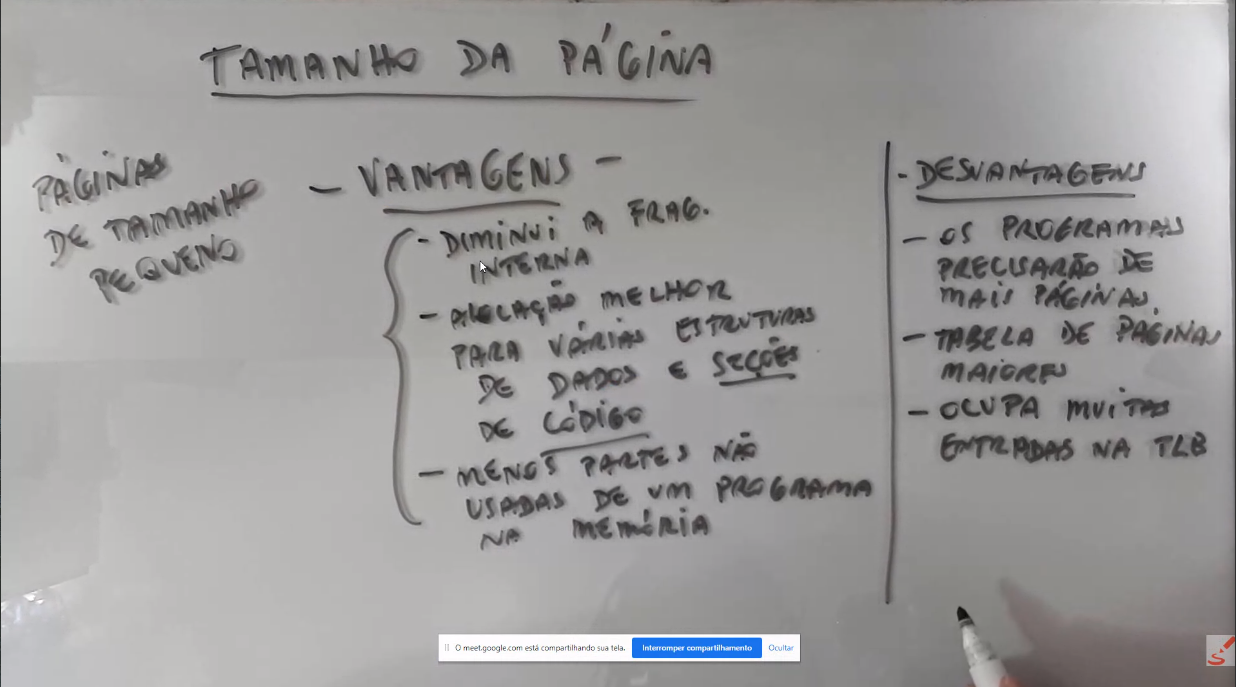 TAMANHO DA PÁGINA
PÁGINAS
DE TAMANHO
PEQUENO
- VANTAGENS -
- DIMINUI A FRAG.
INTERNA
- ALOCAÇÃO MELHOR
PARA VÁRIAS ESTRUTURAS
DE DADOS E SEÇÕES
DE CÓDIGO
- MENOS PARTES NÃO
USADAS DE UM PROGRAMA
NA MEMÓRIA
- DESVANTAGENS
- OS PROGRAMAS
PRECISARÃO DE
MAIS PÁGINAS
- TABELA DE PÁGINAS
MAIORES
- OCUPA MUITAS
ENTRADAS NA TLB
O meet.google.com está compartilhando sua tela.
Interromper compartilhamento
Ocultar